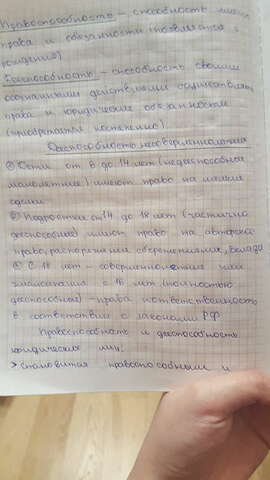 Правоспособность – способность иметь
права и обязанности (появляется с
рождения)
Дееспособность – способность своими
осознанными действиями осуществлять
права и юридические обязанности
(приобретается постепенно)
Дееспособность несовершеннолетних
Дети от 6 до 14 лет (недееспособные
малолетние) имеют право на мелкие
сделки
Подростки от 14 до 18 лет (частично
дееспособные) имеют право на авторское
право, распоряжения сбережениями,
С 18 лет – совершеннолетние или
с 16 лет (полностью
дееспособная) – права и ответственность
в соответствии с законами РФ
Правоспособность и дееспособность
юридических лиц:
> становится правоспособными и